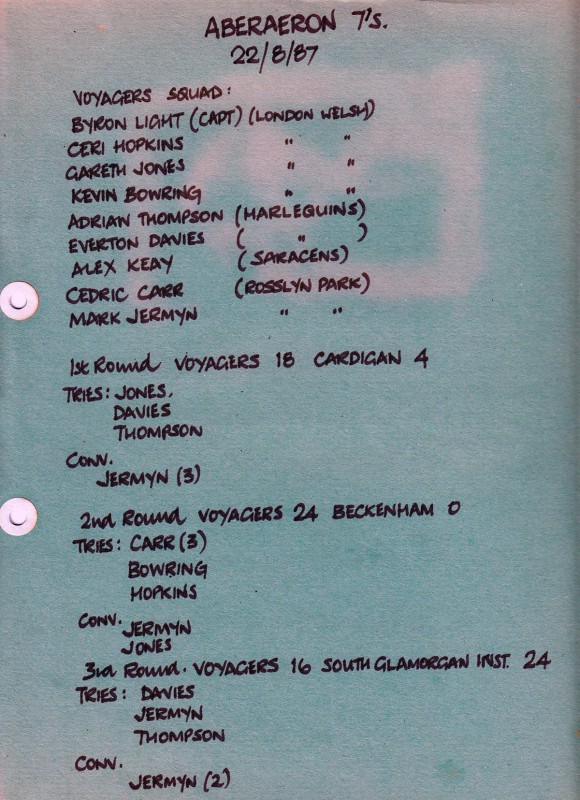 ABERAERON 7's.
22/8/87
VOYAGERS SQUAD:
BYRON LIGHT (CAPT) (LONDON WELSH)
CERI HOPKINS " "
GARETH JONES " "
KEVIN BOWRING " "
ADRIAN THOMPSON (HARLEQUINS)
EVERTON DAVIES ( " )
ALEX KEAY (SARACENS)
CEDRIC CARR (ROSSLYN PARK)
MARK JERMYN " "
1st Round VOYAGERS 18 CARDIGAN 4
TRIES: JONES,
DAVIES
THOMPSON
CONV.
JERMYN (3)
2nd Round VOYAGERS 24 BECKENHAM 0
TRIES: CARR (3)
BOWRING
HOPKINS
CONV. JERMYN
JONES
3rd Round. VOYAGERS 16 SOUTH GLAMORGAN INST. 24
TRIES: DAVIES
JERMYN
THOMPSON
CONV.
JERMYN (2)